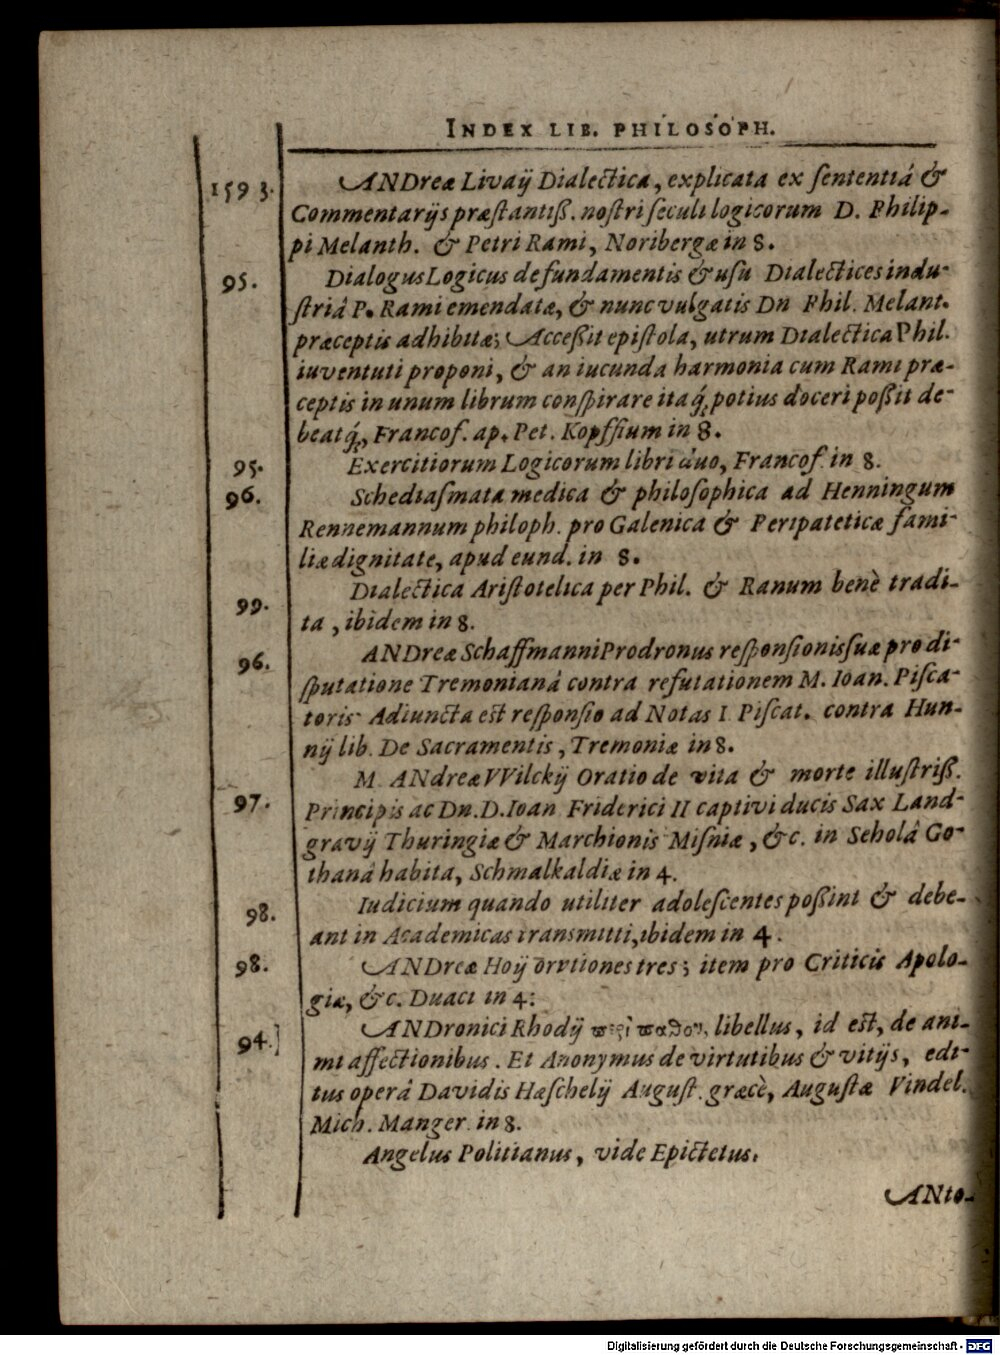 INDEX LIB. PHILOSOPH.
1593. ANDreæ Livaij Dialectica, explicata ex ſententiâ &
Commentarijs præſtantiß. noſtri ſeculi logicorum D. Philip-
pi Melanth. & Petri Rami, Noribergæ in 8.
95. Dialogus Logicus de fundamentis & uſu Dialectices indu-
ſtriâ P. Rami emendatæ, & nunc vulgatis Dn Phil. Melant.
præceptis adhibitæ; Acceßit epiſtola, utrum Dialectica Phil.
iuventuti proponi, & an iucunda harmonia cum Rami præ-
ceptis in unum librum conſpirare itaq́; potius doceri poßit de-
beatq́;, Francof. ap. Pet. Kopffium in 8.
95. Exercitiorum Logicorum libri duo, Francof. in 8.
96. Schediaſmata medica & philoſophica ad Henningum
Rennemannum philoph. pro Galenica & Peripateticæ fami-
liæ dignitate, apud eund. in 8.
99. Dialectica Ariſtotelica per Phil. & Ranum benè tradi-
ta, ibidem in 8.
96. ANDreæ Schaffmanni Prodronus reſponſionis ſuæ pro di-
ſputatione Tremonianâ contra refutationem M. Ioan. Piſca-
toris Adiuncta est reſponſio ad Notas I. Piſcat. contra Hun-
nij lib. De Sacramentis, Tremoniæ in 8.
97. M. ANdreæ VVilckij Oratio de vita & morte illuſtriß.
Principis ac Dn. D. Ioan Friderici II captivi ducis Sax Land-
gravij Thuringiæ & Marchionis Miſniæ, &c. in Seholâ Go-
thanâ habita, Schmalkaldiæ in 4.
98. Iudicium quando utiliter adoleſcentes poßint & debe-
ant in Academicas transmitti, ibidem in 4.
98. ANDreæ Hoij orationes tres; item pro Criticis Apolo-
giæ, &c. Duaci in 4:
94.] ANDronici Rhodij περὶ παθου, libellus, id est, de ani-
mi affectionibus. Et Anonymus de virtutibus & vitijs, edi-
tus operâ Davidis Hæſchelij Auguſt. græcè, Auguſtæ Vindel.
Mich. Manger. in 8.
Angelus Politianus, vide Epictetus.
ANto-
Digitalisierung gefördert durch die Deutsche Forschungsgemeinschaft - DFG